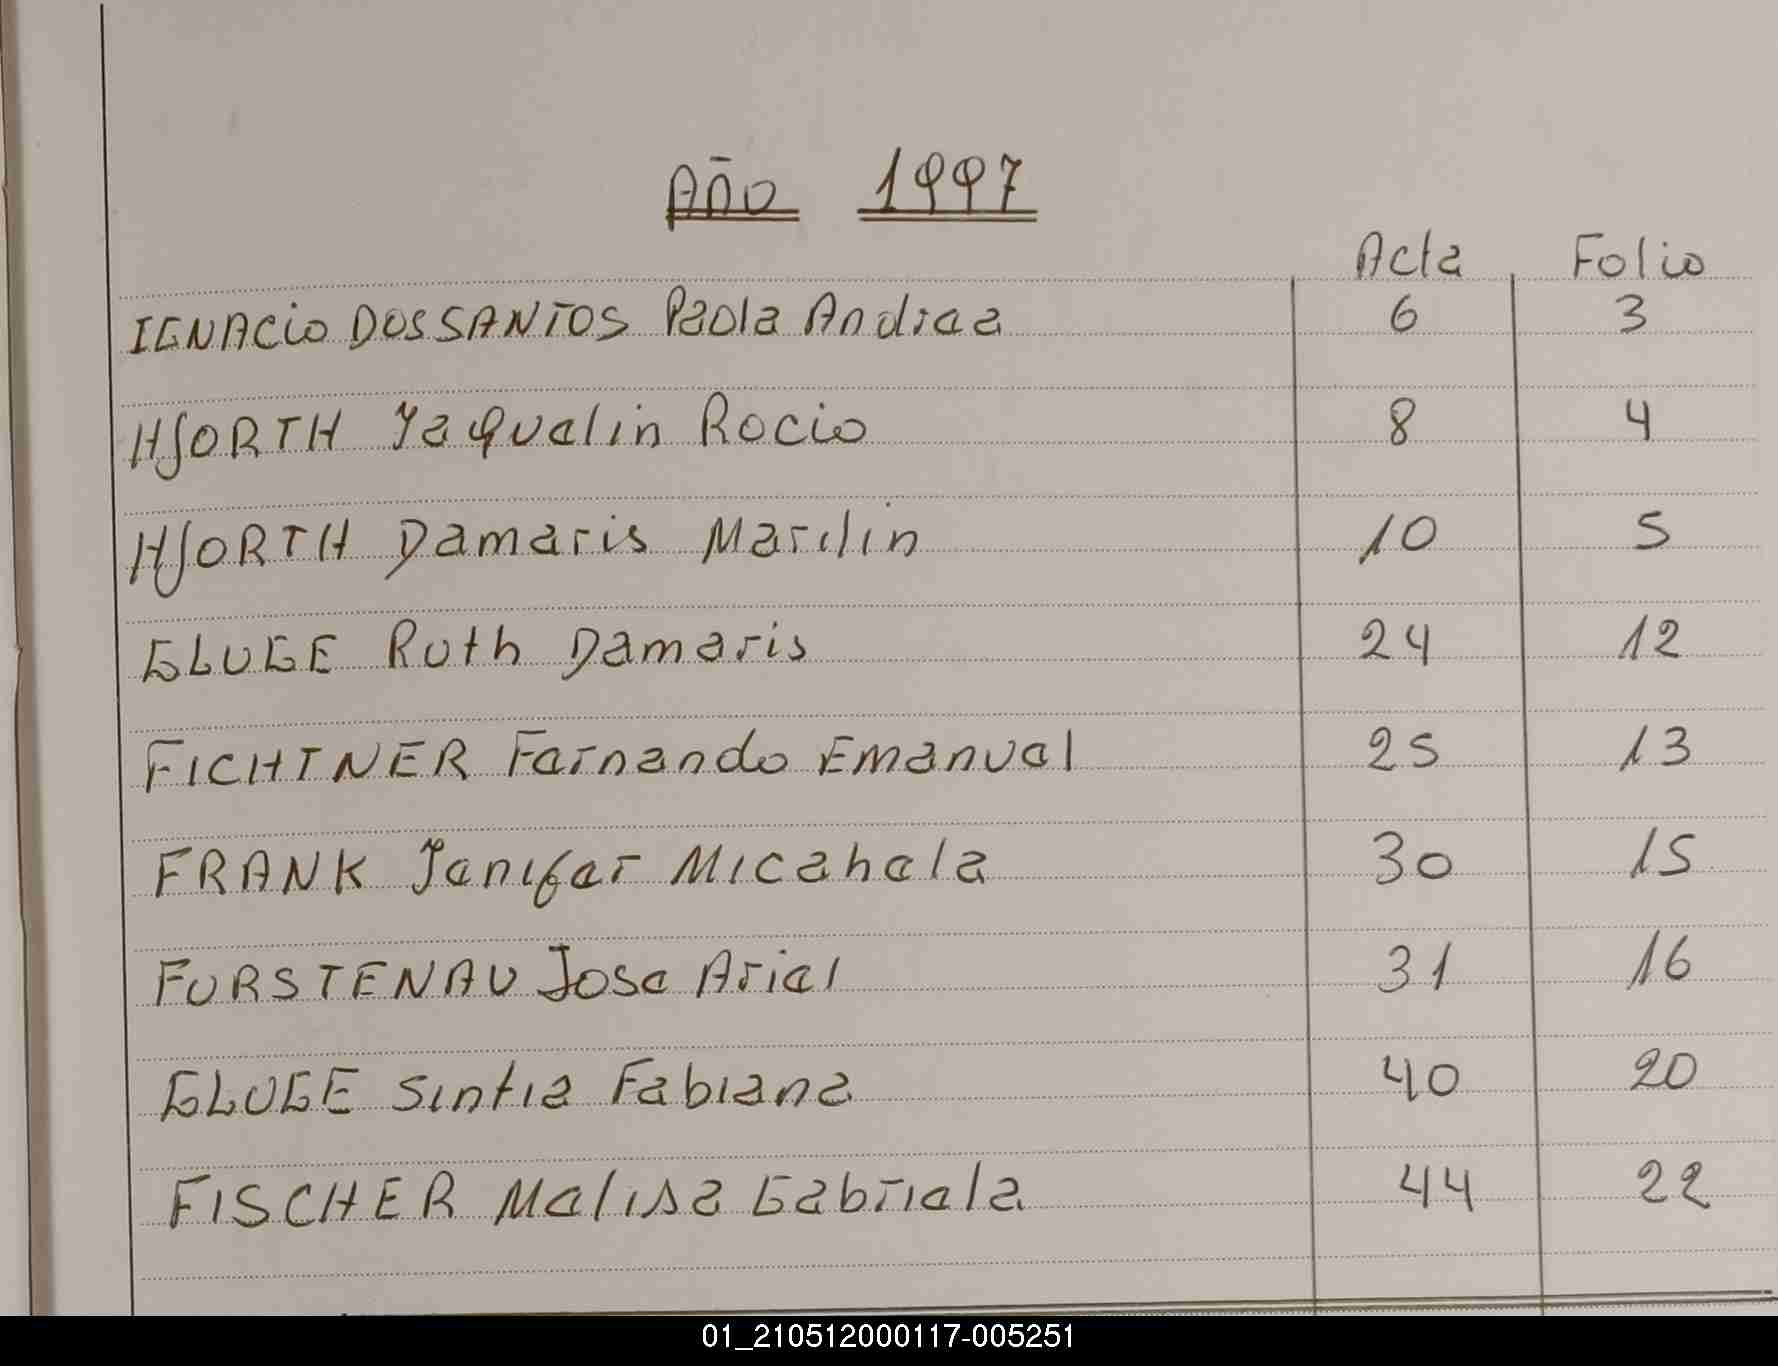 AÑO 1997
Acta Folio
IGNACIO DOS SANTOS Paola Andrea 6 3
HJORTH Yaquelin Rocio 8 4
HJORTH Damaris Marilin 10 5
GLUGE Ruth Damaris 24 12
FICHTNER Fernando Emanuel 25 13
FRANK Jenifer Micahela 30 15
FURSTENAU Jose Ariel 31 16
GLUGE Sintia Fabiana 40 20
FISCHER Melisa Gabriela 44 22
01_210512000117-005251